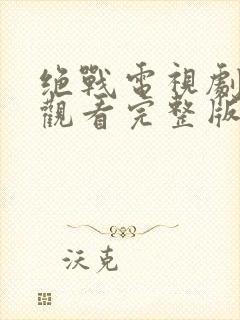 絕戰電視劇
觀看完整版
沃克